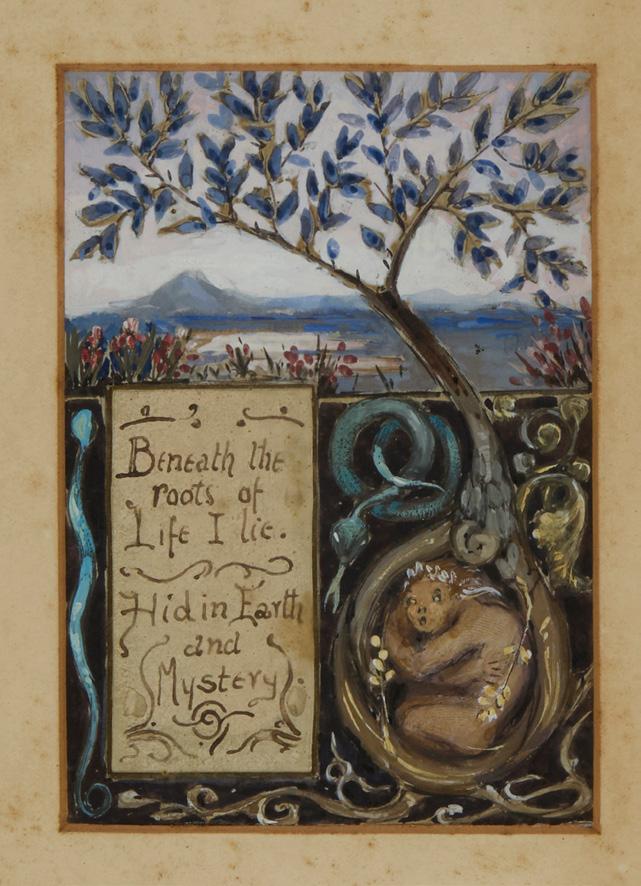 Beneath the
roots of
Life I lie.
Hid in Earth
and
Mystery